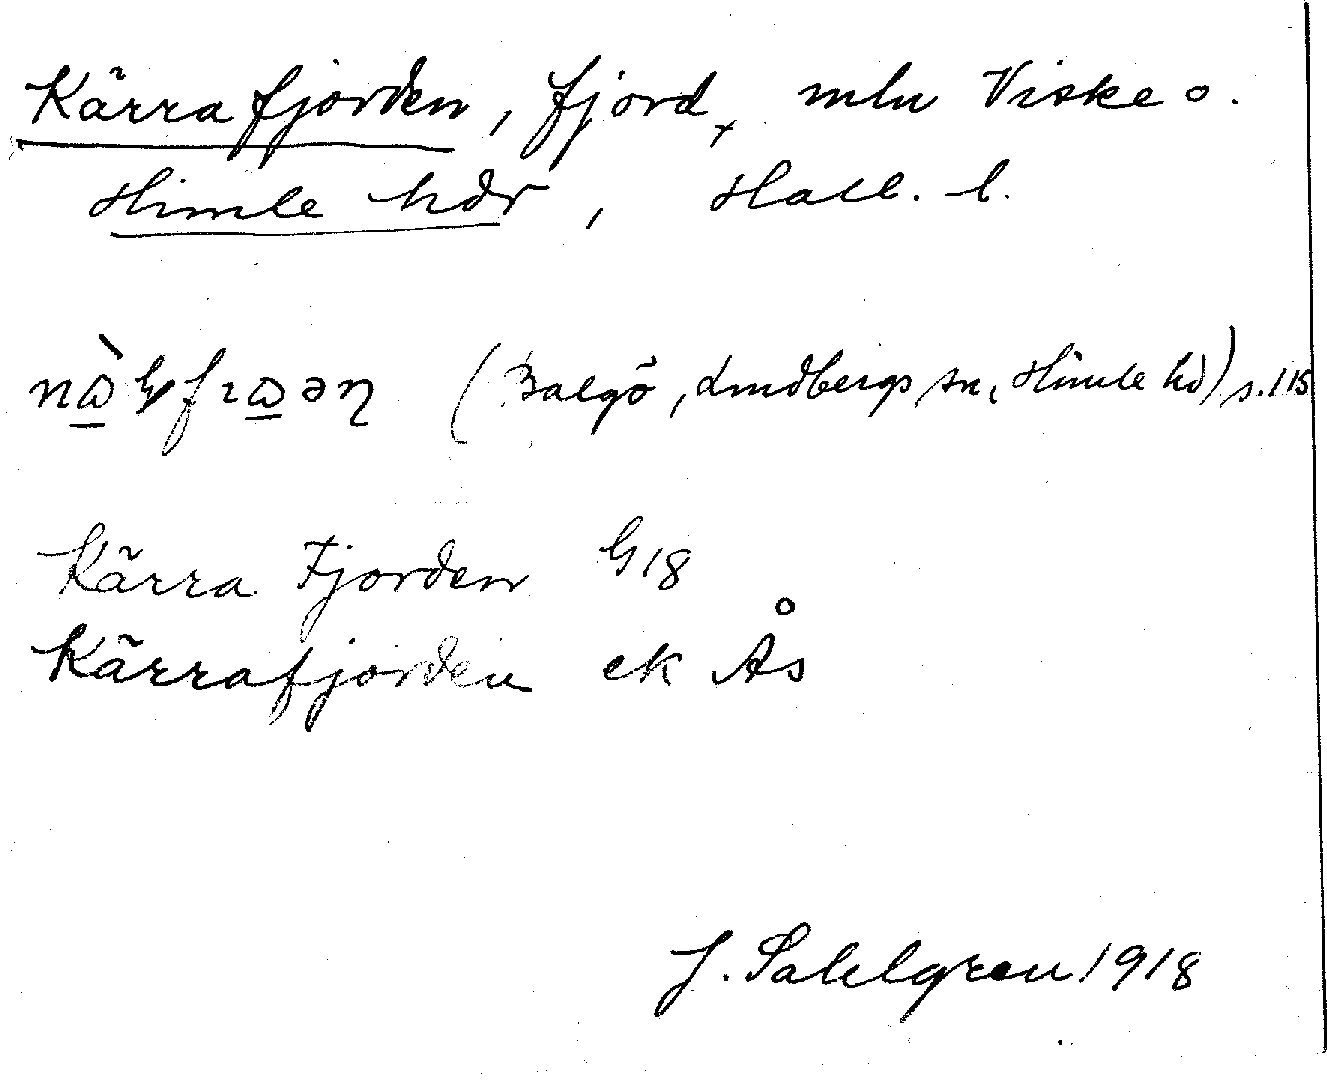 Kärrafjorden, fjord, mln Viske o.
Himle hdr, Hall. l.
(Balgö, Lindbergs sn, Himle hd) s. 115
Kärra Fjorden G 18
Kärrafjorden ek Ås
J. Sahlgren 1918